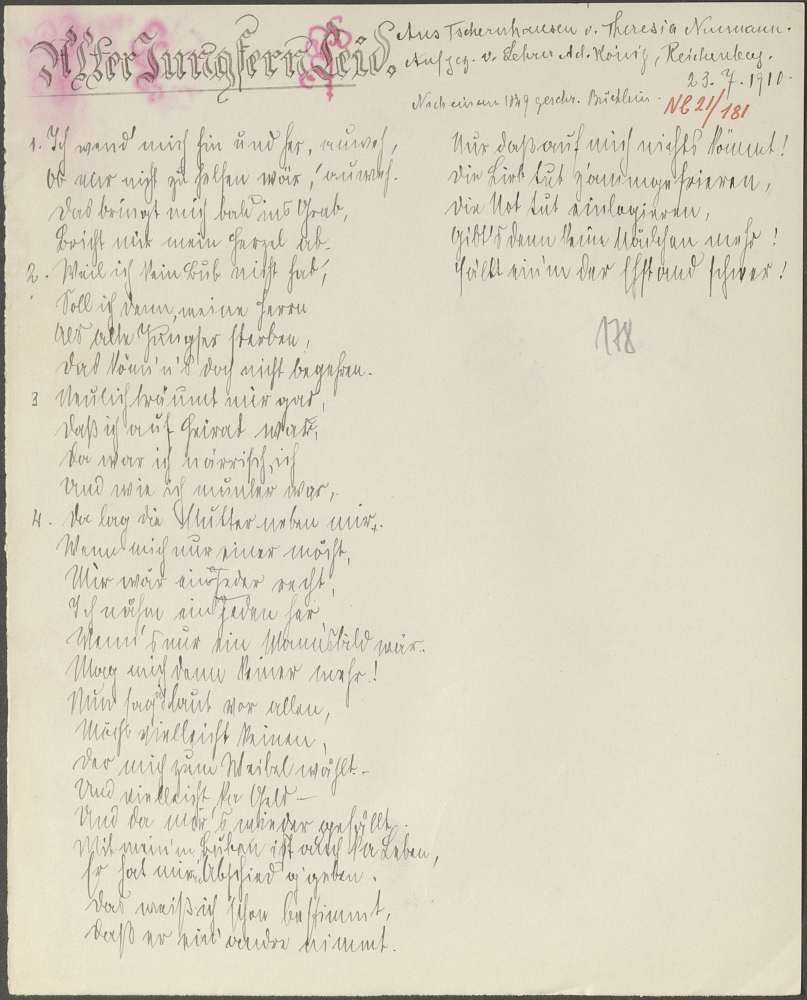 Alter Jungfern Leid.
Aus Tschernhausen v. Theresia Neumann.
Aufgez. v. Lehrer Ad. König, Reichenberg.
23. 7. 1910.
Nach einem 1849 geschr. Büchlein.
NE 21/181
1. Ich wend' mich hin und her, auweh,
Ob mir nicht zu helfen wär', auweh.
Das bringt mich bald ins Grab,
Bricht mir mein Herzel ab.
2. Weil ich kein Bub nicht hab',
Soll ich denn, meine Herrn
Als alte Jungfer sterben,
Das könn'n S' doch nicht begehren.
3 Neulich träumt mir gar,
Daß ich auf Heirat war,
Da war ich närrisch, ich
Und wie ich munter war,
4. Da lag die Mutter neben mir.
Wenn mich nur einer möcht,
Mir wär ein Jeder recht,
Ich nähm ein Jeden her,
Wenn's nur ein Mannsbild wär.
Mag mich denn keiner mehr!
Nun sag's laut vor allen,
Möcht vielleicht keinen,
Der mich zum Weibel wählt.-
Und vielleicht ka Geld —
Und da wär's wieder gefällt.
Mit mein'm Buben ist auch ka Leben,
Er hat mir Abschied g'geben.
Das weiß ich schon bestimmt,
Daß er ein' andre nimmt.
Nur daß auf mich nichts kömmt!
Die Lieb tut z'ammgefrieren,
Die Not tut einlogieren,
Gibt's denn kein Mädchen mehr!
Fällt ein'm der Ehstand schwer!
178